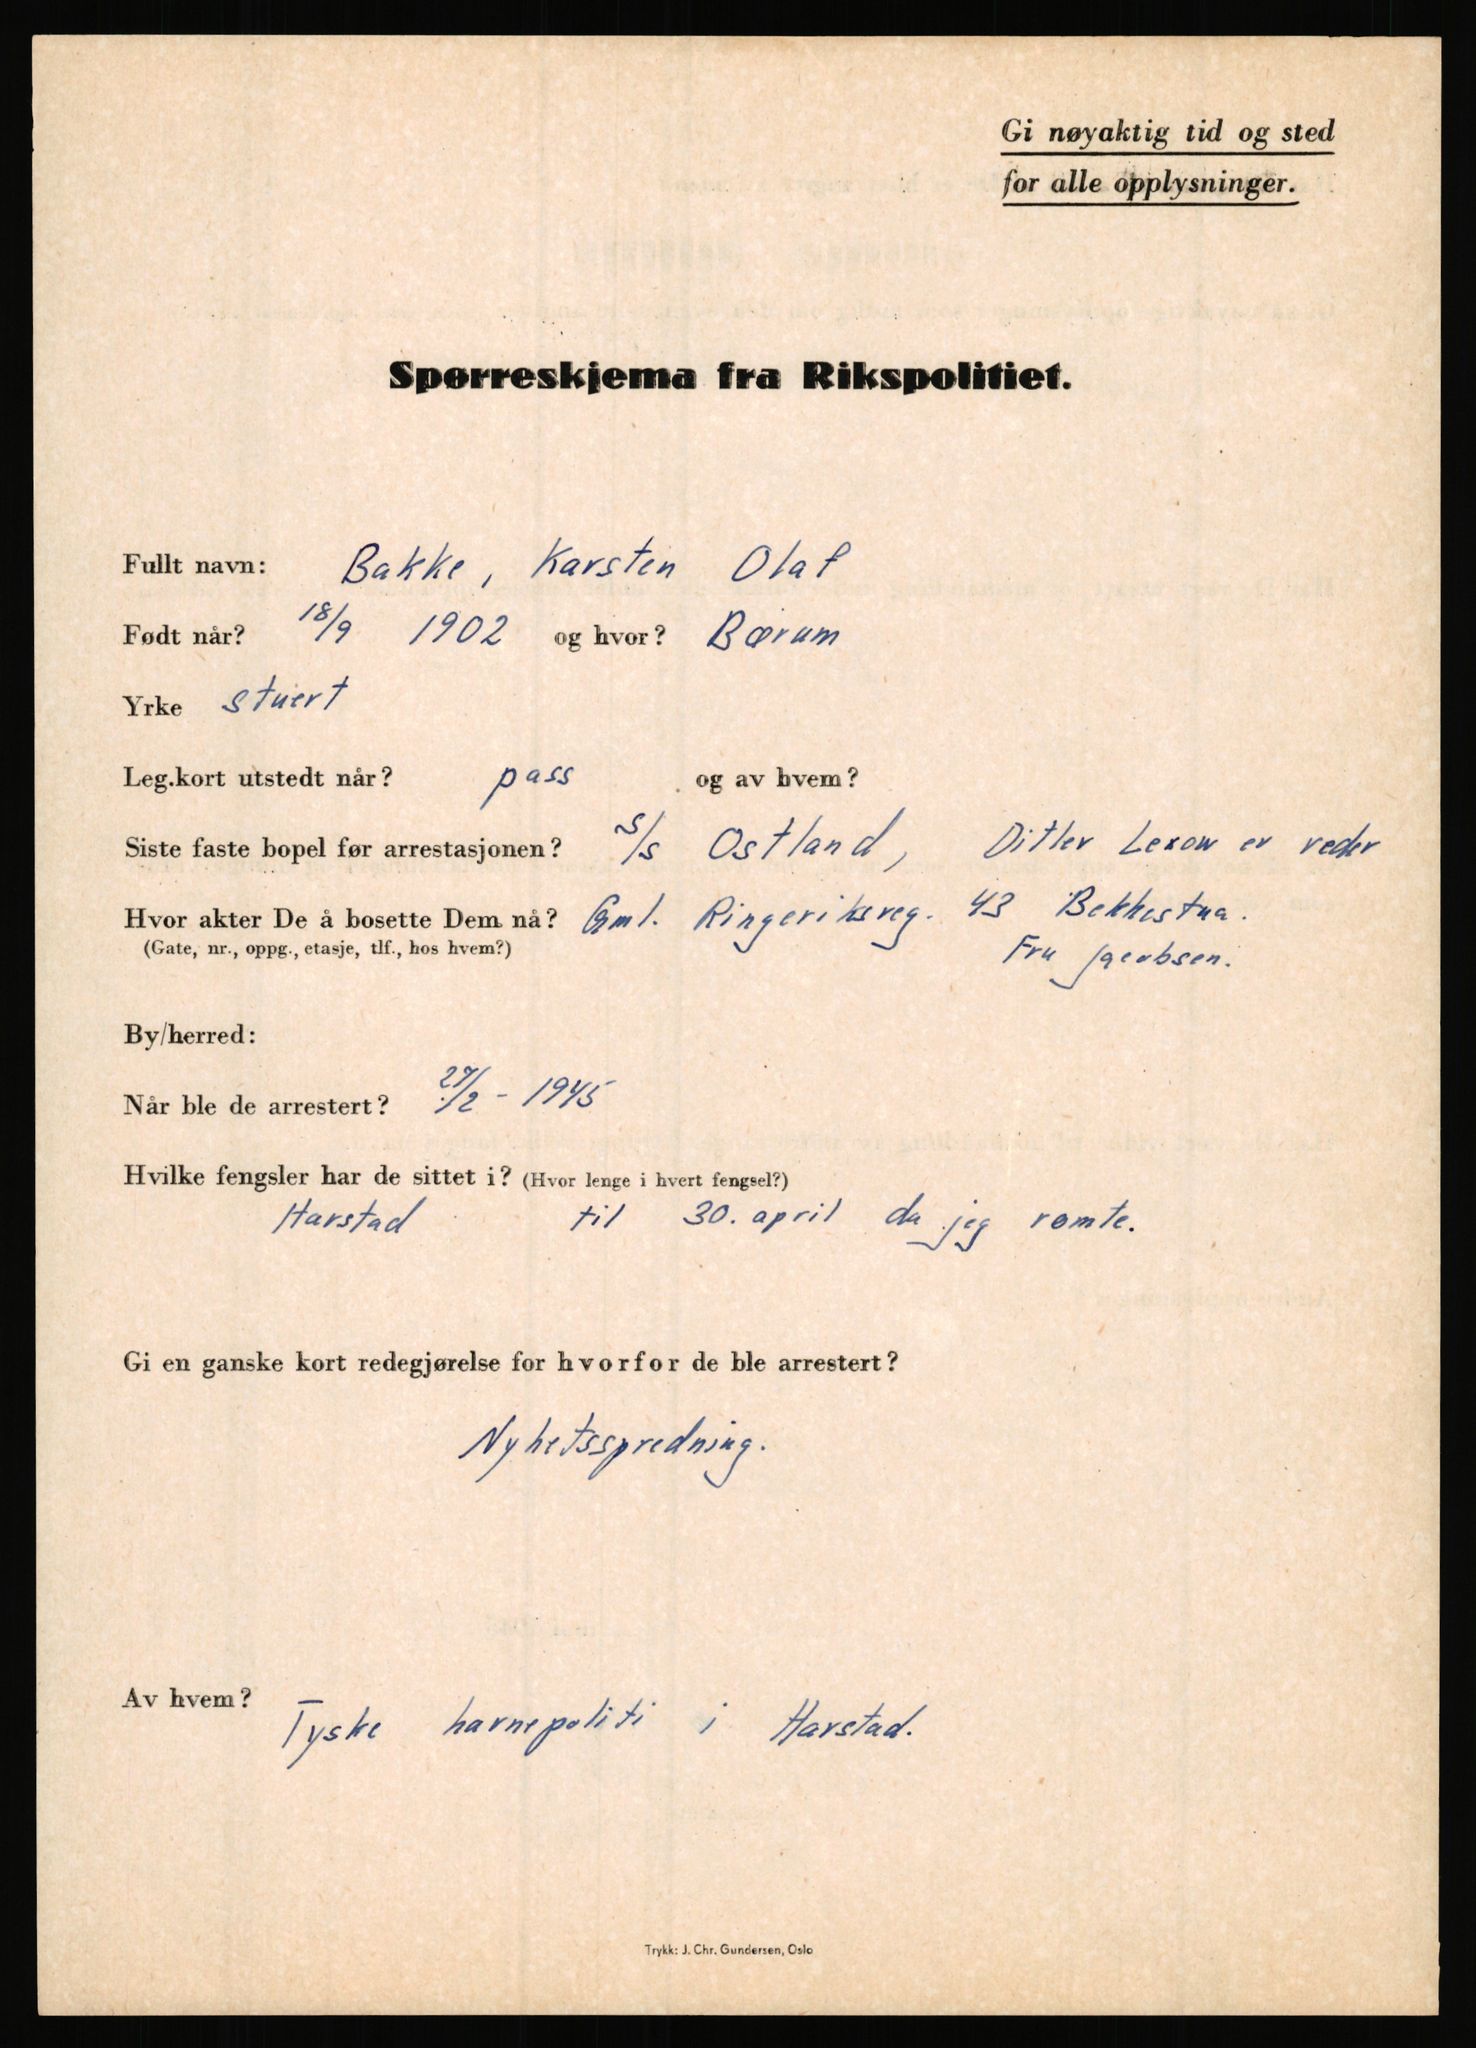 Gi nøyaktig tid og sted
for alle opplysninger.
Spørreskjema fra Rikspolitiet.
Fullt navn: Bakke, Karsten Olaf
Født når? 18/9 1902 og hvor? Bærum
Yrke stuert
Leg.kort utstedt når? pass og av hvem?
Siste faste bopel før arrestasjonen? S/S Ostland, Ditlev Lexow er reder
Hvor akter De å bosette Dem nå? Gml. Ringeriksveg. 43 Bekkestua.
(Gate, nr., oppg., etasje, tlf., hos hvem?) Fru Jacobsen.
By/herred:
Når ble de arrestert? 27/2 - 1945
Hvilke fengsler har de sittet i? (Hvor lenge i hvert fengsel?)
Harstad til 30. april da jeg rømte.
Gi en ganske kort redegjørelse for hvorfor de ble arrestert?
Nyhetsspredning.
Av hvem? Tyske havnepoliti i Harstad.
Trykk: J. Chr. Gundersen, Oslo